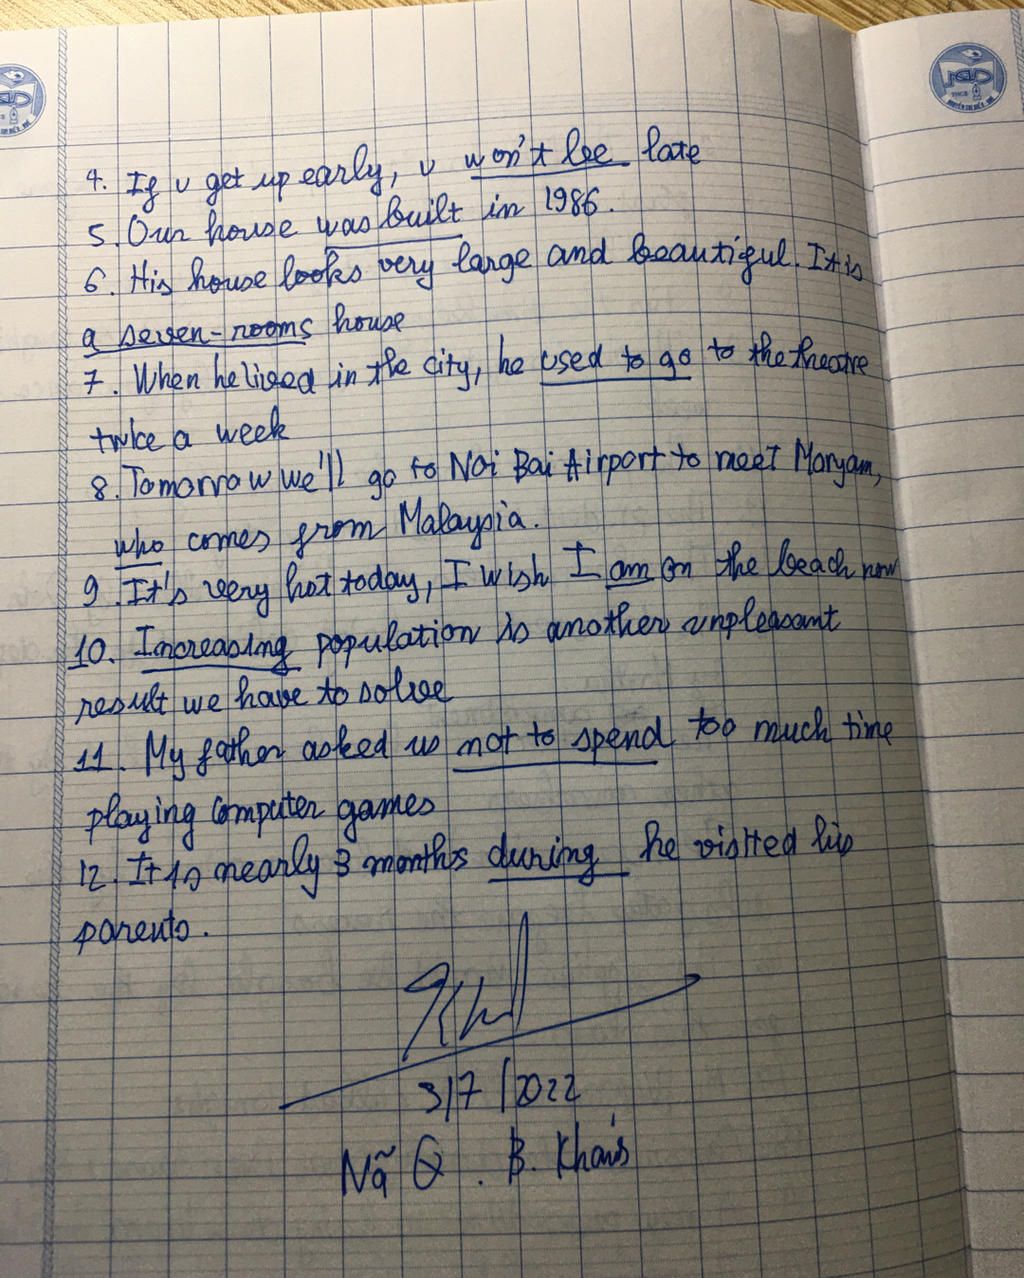 4. If u get up early, u won't be late
5. Our house was built in 1986.
6. His house looks very large and beautiful. It is
a seven-rooms house
7. When he lived in the city, he used to go to the theatre
twice a week
8. Tomorrow we'll go to Noi Bai Airport to meet Maryam,
who comes from Malaysia.
9. It's very hot today, I wish I am on the beach now
10. Increasing population is another unpleasant
result we have to solve
11. My father asked us not to spend too much time
playing computer games
12. It is nearly 3 months during he visited his
parents.
3/7/2022
Nã Q. B.